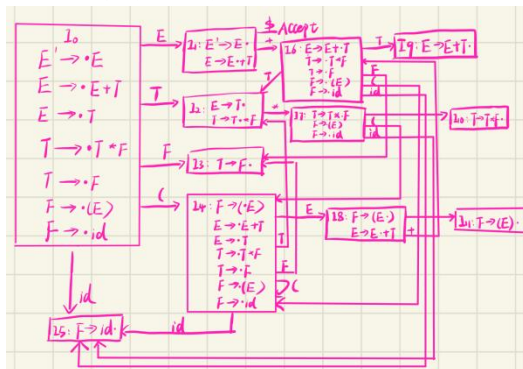 I₀
E' → ·E
E → ·E+T
E → ·T
T → ·T*F
T → ·F
F → ·(E)
F → ·id
E
I1: E'→E·
E→E·+T
$ Accept
+
I6: E→E+·T
T→·T*F
T→·F
F→·(E)
F→·id
T
I9: E→E+T·
T
F
(
id
T
I2: E→T·
T→T·*F
*
I7: T→T*·F
F→·(E)
F→·id
F
(
id
I10: T→T*F·
F
I3: T→F·
(
I4: F→(·E)
E→·E+T
E→·T
T→·T*F
T→·F
F→·(E)
F→·id
E
T
F
(
I8: F→(E·)
E→E·+T
)
+
I11: F→(E)·
id
I5: F→id·
id